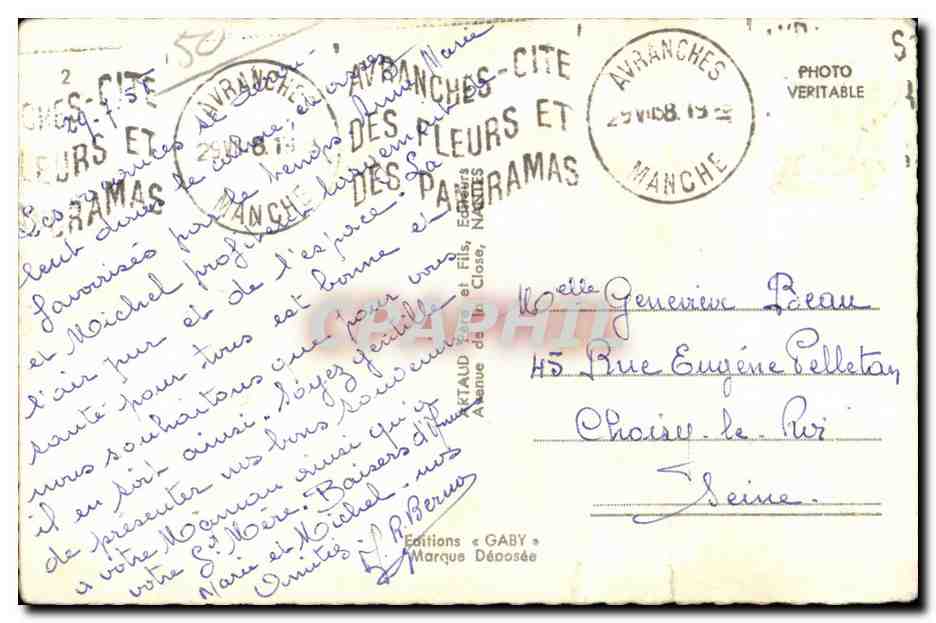 2
50
CHES-CITÉ
LEURS ET
RAMAS
AVRANCHES
MANCHE
AVRANCHES-CITÉ
DES FLEURS ET
DES PANORAMAS
AVRANCHES
MANCHE
S
PHOTO
VERITABLE
Ces vacances se
dans le calme, et
favorisés par le temps Anne Marie
et Michel profitent largement de
l'air pur et de l'espace. La
santé pour tous est bonne et
nous souhaitons que pour vous
il en soit ainsi. Soyez gentille
de présenter nos bons souvenirs
à votre Maman ainsi qu'à
votre Gd Mère. Baisers d'Anne
Marie et Michel, nos
Amitiés
ARTAUD Père et Fils, Editeurs
Avenue de la Close, NANTES
Melle Geneviève Beau
45 Rue Eugène Pelletan
Choisy-le-Roi
Seine.
Editions « GABY »
Marque Déposée
CPAPHIL